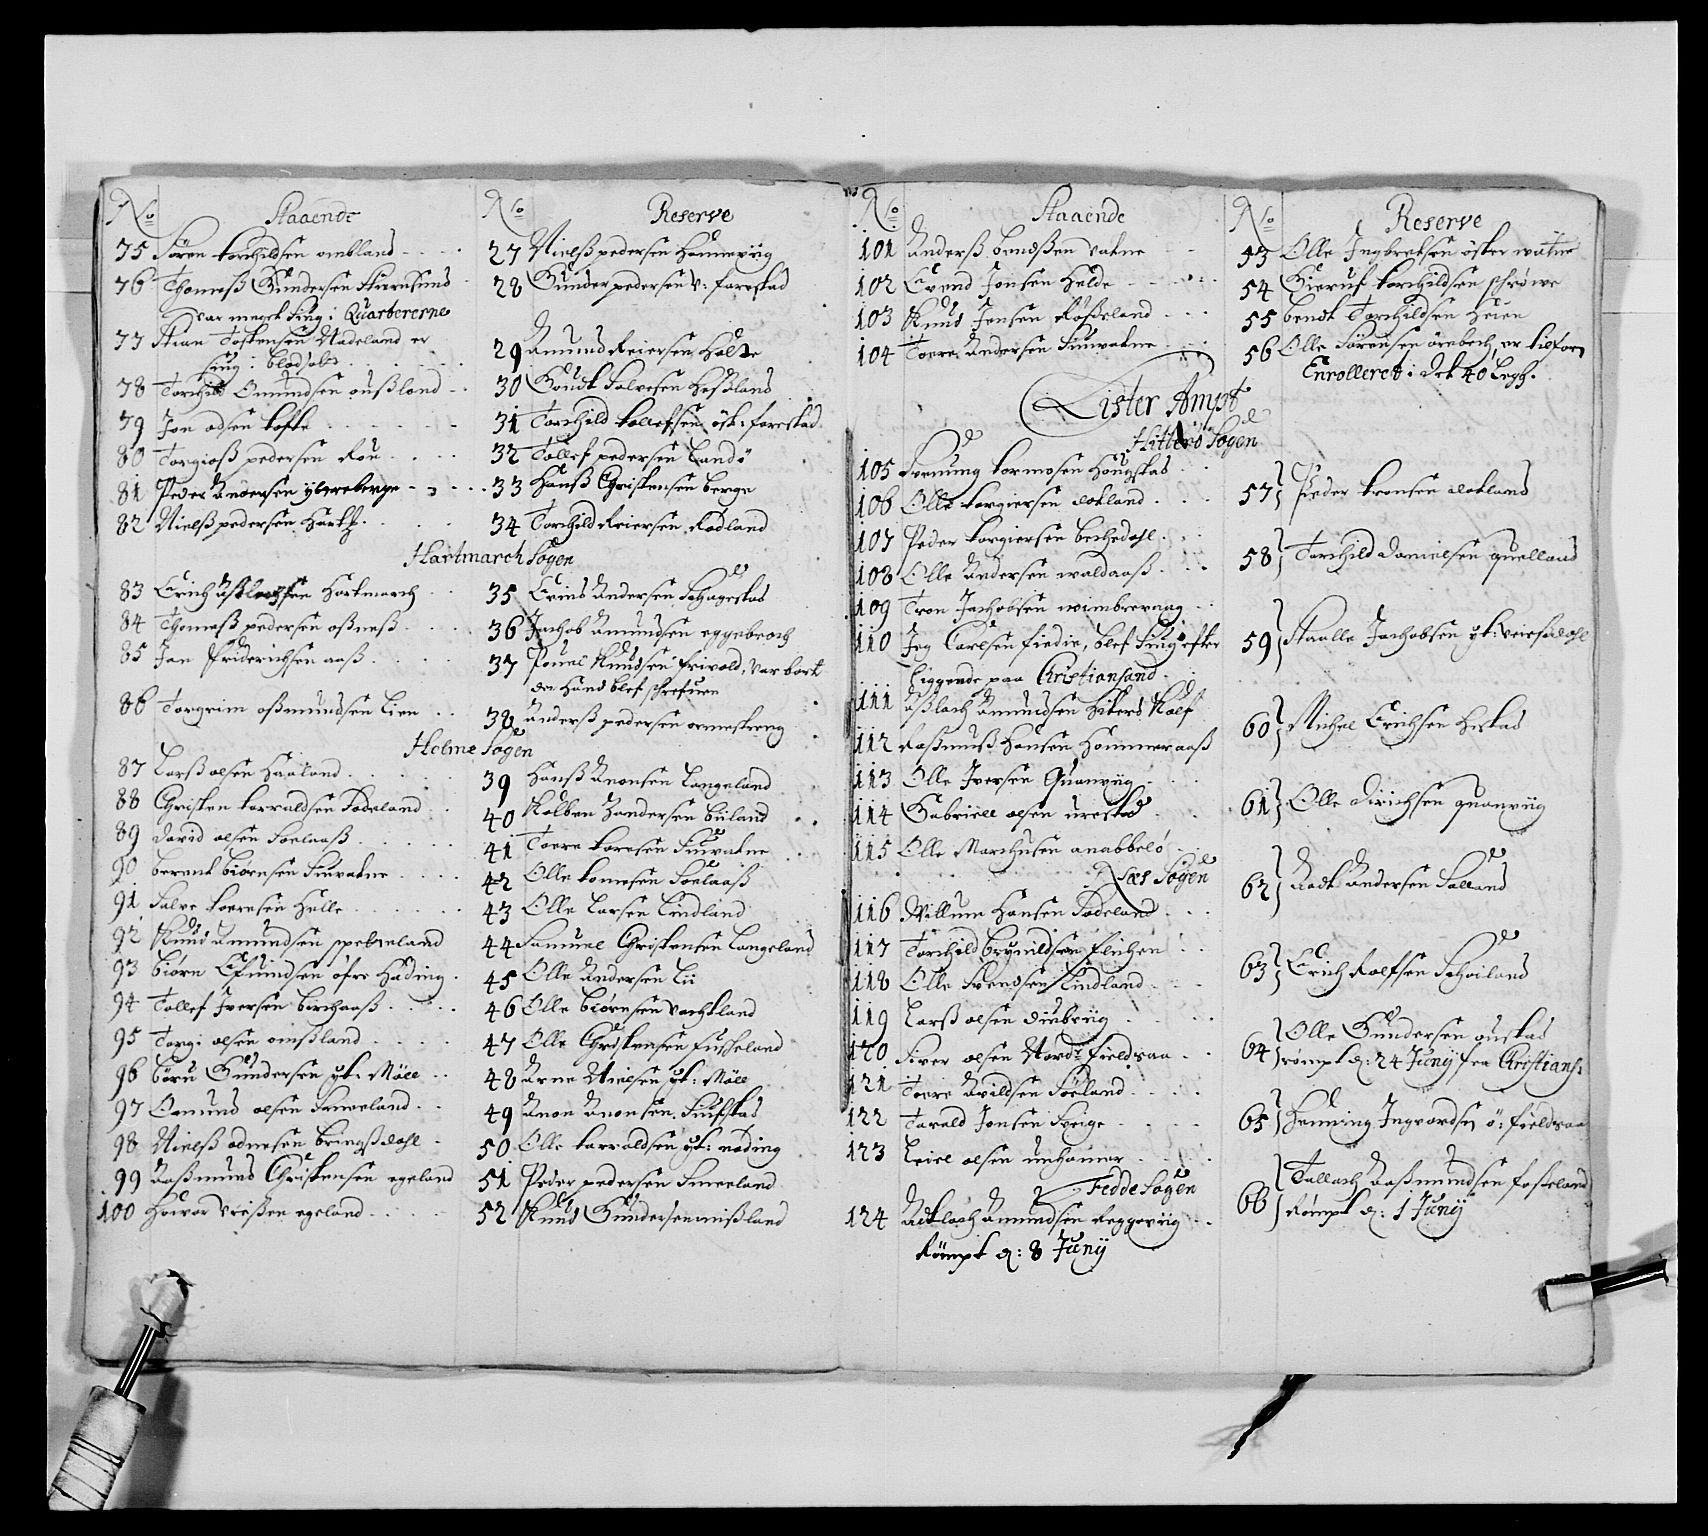 No Staaende
75 Søren torchildsen ombland
76 Thomaß Gundersen Stiernsund
var meget siug i Quartererne
77 Stian Torkensen Uadeland er
siug i blodsodt
78 Torchild Omundsen oußland
79 Jon odsen tofte
80 Torgioß pedersen Rou
81 Peder Andersen ytreberge
82 Nielß pedersen Harkh
Hartmarch Sogen
83 Erich Aßlachsen Hartmarch
84 Thomaß pedersen oßneß
85 Jan Friderichsen aaß
86 Torgrim oßmundsen Lien
Holme Sogen
87 Larß olsen Haaland
88 Christen torvaldsen Fodeland
89 david olsen Foelaaß
90 berent biørnsen Siuvatne
91 Salve torresen Helle
92 Knud Amundsen
93 biørn Efuindsen øfre Hading
94 Tollef Iversen birchaaß
95 Torgi olsen omßland
96 Børu Gundersen yt: Møll
97 Osmund olsen Fameland
98 Nielß odnesen bringßdahl
99 Raßmuus Christensen egeland
100 Haivor egeland
No Reserve
27 Nielß pedersen Honneviig
28 Gunder pedersen v: farestad
29 Amund Reiersen Holte
30 Goudt Salvesen Heßland
31 Torchild tollefsen øst: farestad
32 Tollef pedersen Landø
33 Hanß Christensen berge
34 Torchild Reiersen Rødland
35 Eruid Andersen Schagestad
36 Jachob Amundsen eggebech
37 Pouel Knudsen Trivold, var bort
den Hand blef schrefuen
38 Anderß pedersen ormestreng
39 Hanß Anonsen Langeland
40 Kolben Zandersen biiland
41 Toere toresen Siuvatne
42 Olle tomesen Foelaaß
43 Olle Larsen Lindland
44 Samuel Christensen Langeland
45 Olle Andersen Lii
46 Olle biørnsen Vachtland
47 Olle Christensen Fuskeland
48 Arne Nielsen yt: Møll
49 Anon Anonsen Siufstad
50 Olle torvaldsen yt: nøding
51 Peder pedersen Fameland
52 Knud Gundersen mißland
No Staaende
101 Anderß bendßen Vatne
102 Evend Jonsen Helde
103 Knud Jensen Røsdeland
104 Toere Andersen Siuvatne
Lister Ampt
Hitterø Sogen
105 Svenung tormosen Hougstad
106 Olle torgiersen dotland
107 Peder torgiersen bechedahl
108 Olle Andersen waldaaß
109 Tron Jachobsen wimbrevaag
110 Jeg Carlsen fiedie, blef Siug efter
Liggende paa Christiansand
111 Aßlach Amundsen Hiterø Kalf
112 Raßmuß Hansen Hammeraaß
113 Olle Iversen Quanviig
114 Gabriell olsen urestad
115 Olle Marchusen anabbelø
Næs Sogen
116 Willum Hansen Fodeland
117 Torchild brynildsen Flichen
118 Olle Svendsen Lindland
119 Larß olsen diubviig
120 Siver olsen Nordr fieldsaa
121 Toere Avildsen Føeland
122 Tarald Jonsen Sveige
123 Leiel olsen unhamar
Fedde Sogen
124 Atlach Amundsen Reggeviig
Rømpt d: 8 Junij
No Reserve
53 Olle Ingbretsen øster watne
54 Gieruf torchildsen schrøwe
55 bendt Torchildsen Heien
56 Olle Sørensen ørebech, er tilforn
Enrolleret i det 40 Legh.
57 Peder tronsen dotland
58 Torchild danielsen quelland
59 Staalle Jachobsen yt: veiesdahl
60 Michel Erichsen Hestad
61 Olle dirichsen quanviig
62 Aadt Andersen Salland
63 Erich Rolfsen Schoiland
64 Olle Gundersen oustad
rømpt d: 24 Junij fra Christians:
65 Henning Ingvordsen ø: fieldsaa
66 Tallach Aaßmundsen foßeland
Rømpt d: 1 Junij